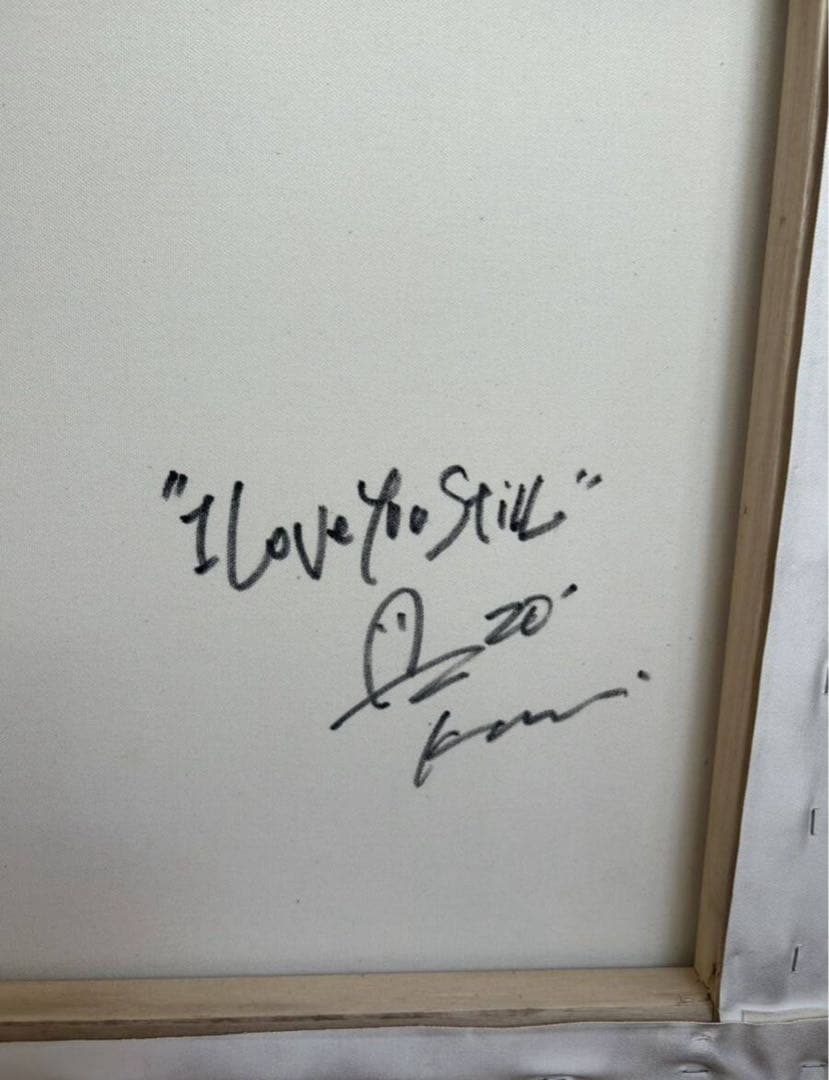 "I Love You Still"
20'